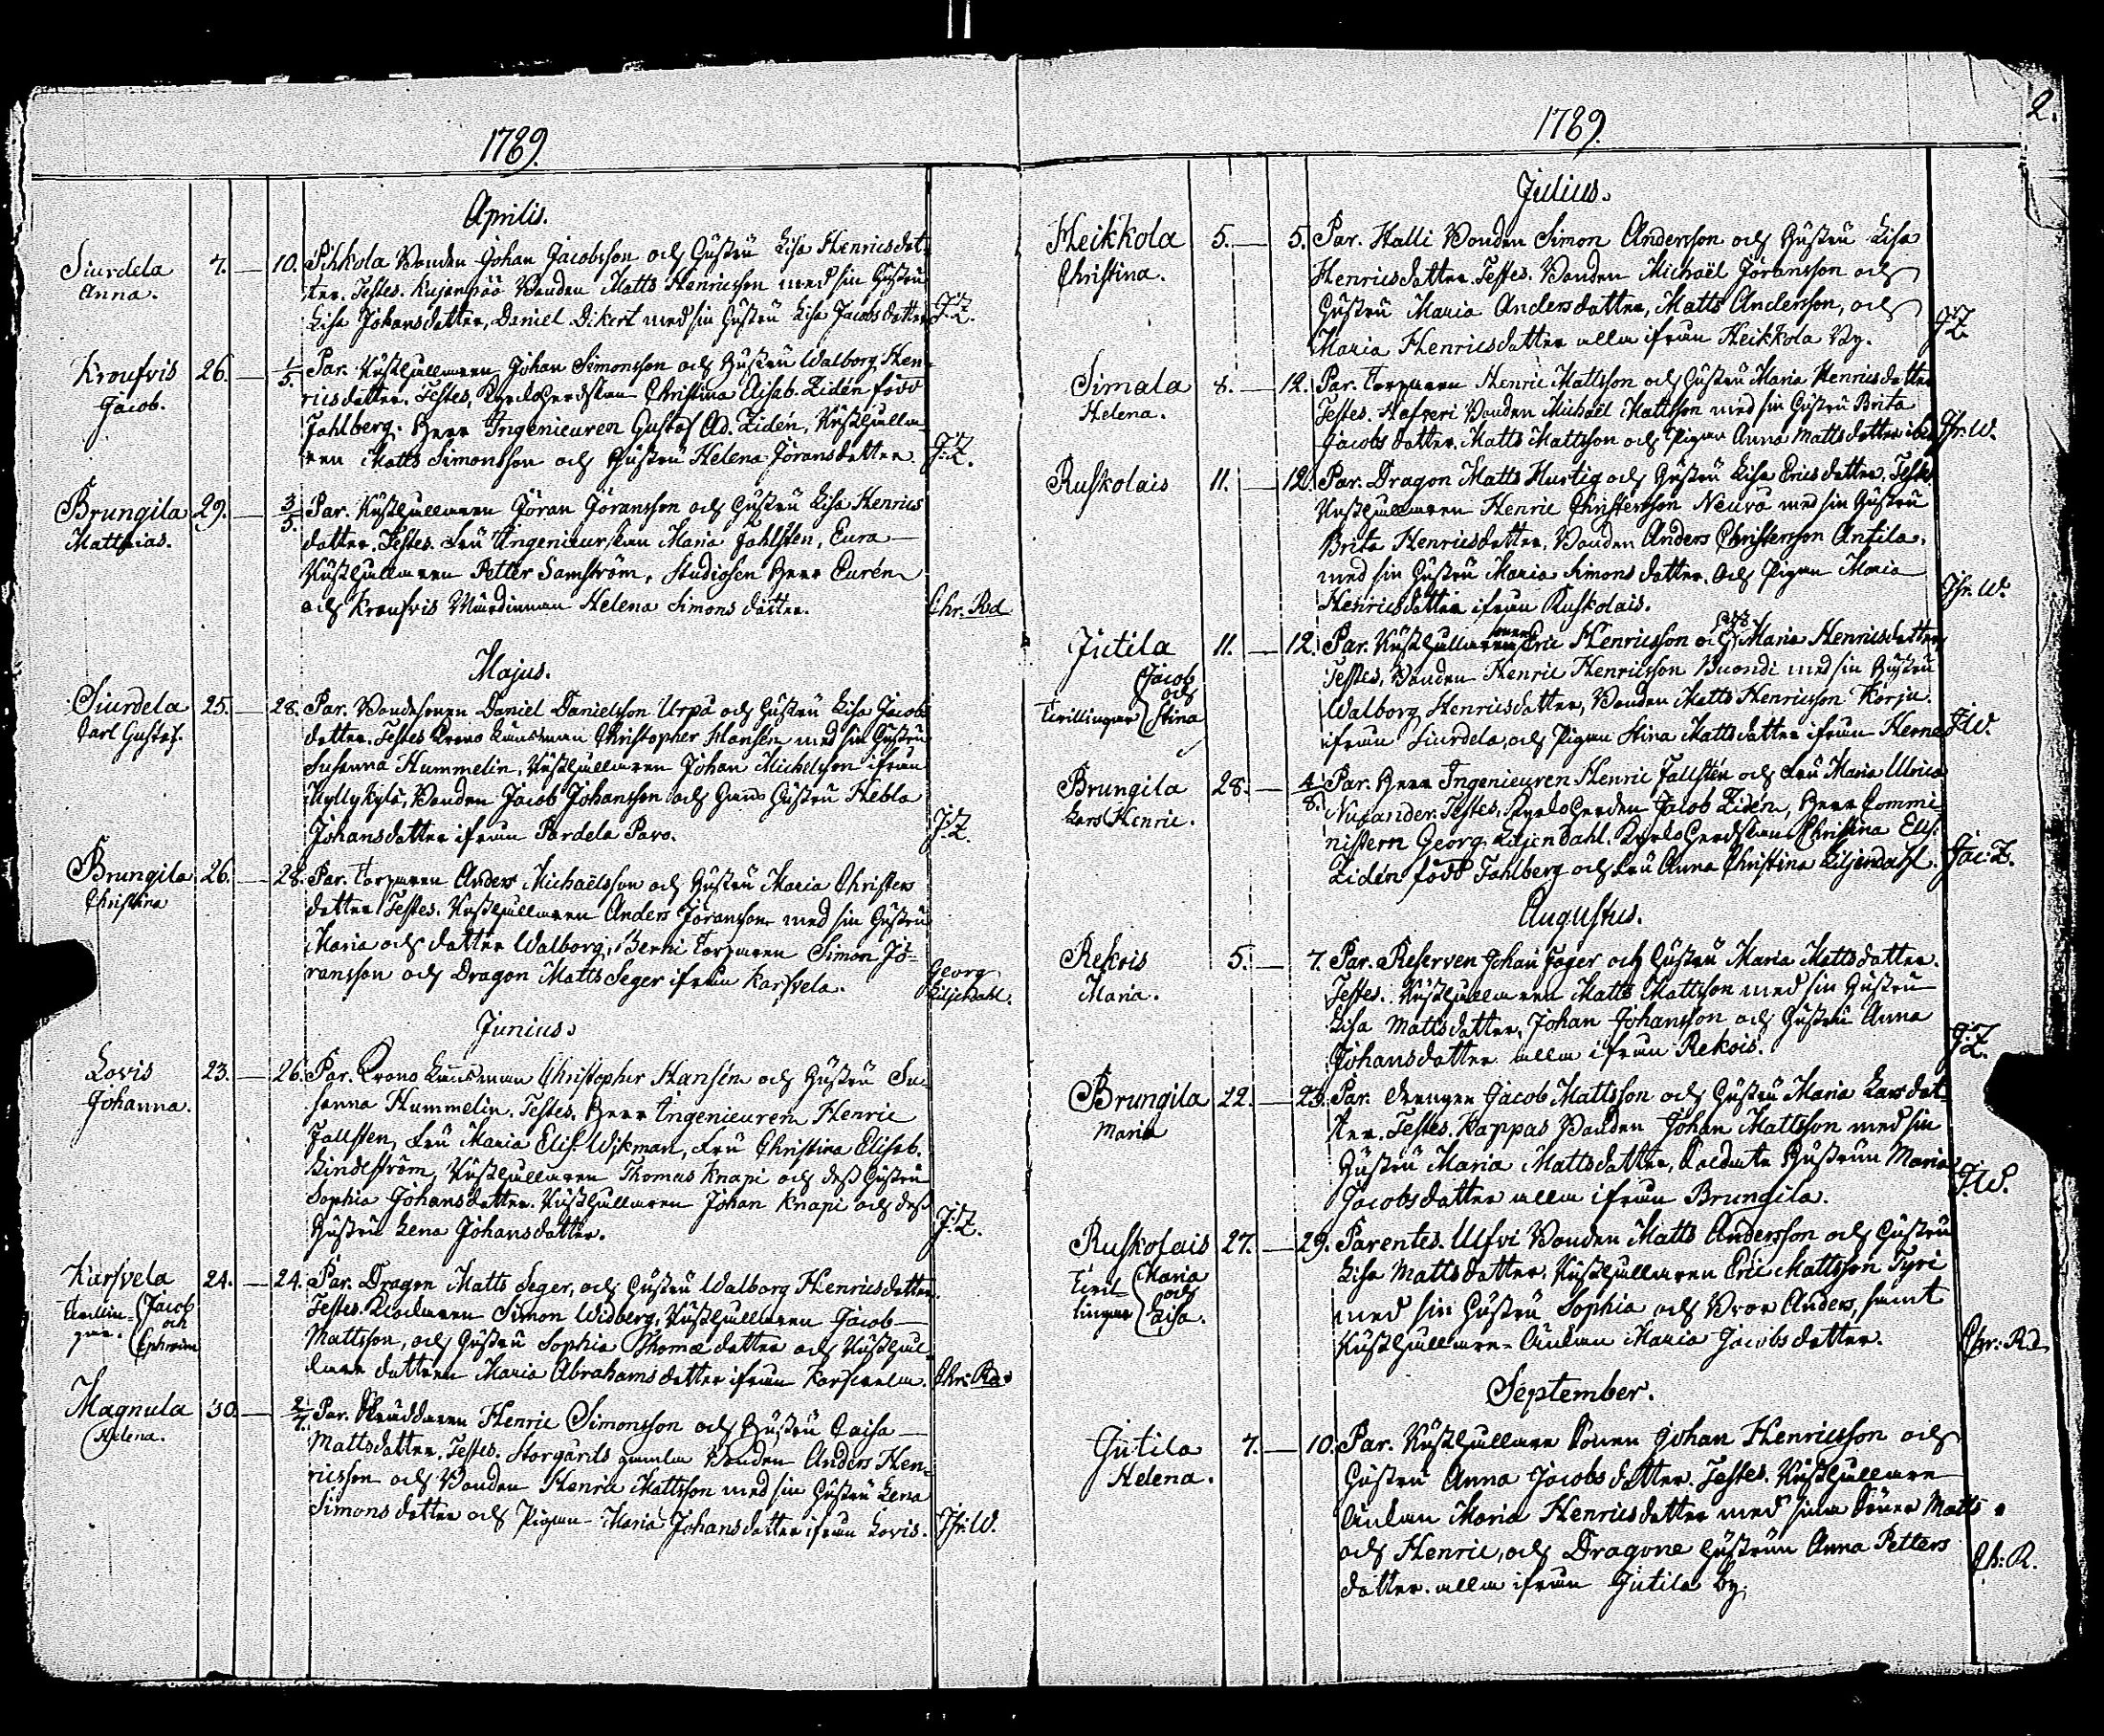 1789.
Aprilis.
Siurdela 7. — 10. Pihkola Bonden Johan Jacobsson och Hustru Lisa Henricsdot-
Anna. ter. Testes. Kujanpää Bonden Matts Henricsson med sin Hustru
Lisa Johansdotter, Daniel Dikert med sin Hustru Lisa Jacobsdotter J:Z.
Kroufvis 26. — 1/5. Par. Rusthållaren Johan Simonsson och Hustru Walborg Hen-
Jacob. ricsdotter. Testes, Kyrkoherdskan Christina Elisab. Zidén född
Fahlberg. Herr Ingenieuren Gustaf Ad. Zidén, Rusthålla-
ren Matts Simonsson och Hustru Helena Jöransdotter. J:Z.
Brungila 29. — 3/5. Par. Rusthållaren Jöran Jöransson och Hustru Lisa Henrics
Matthias. dotter. Testes. Fru Ingenieurskan Maria Fahlsten, Eura
Rusthållaren Petter Samström, Studiosen Herr Eurén
och Kroufvis Värdinnan Helena Simons dotter. Chr. Rd
Majus.
Siurdela 25. — 28. Par. Bondesonen Daniel Danielsson Urpå och Hustru Lisa Jacobs
Carl Gustaf. dotter. Testes Krono Länsman Christopher Hansén med sin Hustru
Susanna Hummelin, Rusthållaren Johan Michelsson ifrån
Kyllykylä, Bonden Jacob Johansson och Hans Hustru Hebla
Johansdotter ifrån Pardela Pavo. J:Z.
Brungila 26. — 28. Par. Torparen Anders Michaëlsson och Hustru Maria Christers
Christina dotter Testes. Rusthållaren Anders Jöransson med sin Hustru
Maria och dotter Walborg, Berni Torparen Simon Jö-
ransson och Dragon Matts Seger ifrån Karhvela. Georg
Liljendahl.
Junius.
Lovis 23. — 26. Par. Krono Länsman Christopher Hansén och Hustru Su-
Johanna. sanna Hummelin. Testes. Herr Ingenieuren Henric
Fallsten, Fru Maria Elis. Wikman, Fru Christina Elisab.
Lindström, Rusthållaren Thomas Knapi och dess Hustru
Sophia Johansdotter. Rusthållaren Johan Knapi och dess
Hustru Lena Johansdotter. J:Z.
Karhvela 24. — 24. Par. Dragon Matts Seger, och Hustru Walborg Henricsdotter.
Tvillin- (Jacob Testes. Klockaren Simon Widberg, Rusthållaren Jacob
och Mattsson, och Hustru Sophia Thomæ dotter och Rusthål-
gar. (Ephraim lare dottren Maria Abrahams dotter ifrån Karhvela. Chr: Rd.
Magnula 30. — 2/7. Par. Skräddaren Henric Simonsson och Hustru Caisa
Helena. Mattsdotter, Testes. Storgårds gamla Bonden Anders Hen-
ricsson och Bonden Henric Mattsson med sin Hustru Lena
Simons dotter och Pigan Maria Johansdotter ifrån Lovis. Jhr: W.
2.
1789.
Julius.
Heikkola 5. — 5. Par. Halli Bonden Simon Andersson och Hustru Lisa
Christina. Henricsdotter. Testes. Bonden Michaël Jöransson och
Hustru Maria Andersdotter, Matts Andersson, och
Maria Henricsdotter alla ifrån Heikkola By. J:Z.
Simala 8. — 12. Par. Torparen Henric Mattsson och Hustru Maria Henricsdotter
Helena. Testes. Bonden Michaël Mattsson med sin Hustru Brita
Jacobs dotter. Matts Mattsson och Pigan Anna Mattsdotter Jhr. W.
Ruskolais 11. — 12. Par. Dragon Matts Hurtig och Hustru Lisa Ericsdotter, Testes
Rusthållaren Henric Christersson Neuvo med sin Hustru
Brita Henricsdotter, Bonden Anders Christersson Antila,
med sin Hustru Maria Simons dotter. Och Pigan Maria
Henricsdotter ifrån Ruskolais. Jhr. W.
Jutila 11. — 12. Par. Rusthållaren sonen Eric Henricsson och H. Maria Henricsdotter,
(Jacob Testes, Bonden Henric Henricsson Buondi med sin Hustru
och Walborg Henricsdotter, Bonden Matts Henricsson Korju
Tvillingar (Stina ifrån Siurdela, och Pigan Stina Mattsdotter ifrån Herne J:W.
Brungila 28. — 4/8. Par. Herr Ingenieuren Henric Fallstén och Fru Maria Ulrica
Lars Henric. Testes. Kyrkoherden Jacob Zidén, Herr Commi-
nistern Georg Liljendahl. Kyrkoherdskan Christina Elis:
Zidén född Fahlberg och Fru Anna Christina Liljendahl. Jac: Z.
Augustus.
Rekois 5. — 7. Par. Reserven Johan Jäger och Hustru Maria Mattsdotter.
Maria. Testes. Rusthållaren Matts Mattsson med sin Hustru
Lisa Mattsdotter, Johan Johansson och Hustru Anna
Johansdotter alla ifrån Rekois. J:Z.
Brungila 22. — 23. Par. Drengen Jacob Mattsson och Hustru Maria Larsdot-
Maria ter. Testes. Kappas Bonden Johan Mattsson med sin
Hustru Maria Mattsdotter, Soldate Hustrun Maria
Jacobsdotter alla ifrån Brungila. J:W.
Ruskolais 27. — 29. Parentes. Ulfvi Bonden Matts Andersson och Hustru
Tvil- (Maria Lisa Mattsdotter. Rusthållaren Eric Mattsson Tyri
och med sin Hustru Sophia och Bror Anders, samt
lingar (Caisa. Rusthållare-Änkan Maria Jacobsdotter. Chr: Rd
September.
Jutila 7. — 10. Par. Rusthållare Sonen Johan Henricsson och
Helena. Hustru Anna Jacobs dotter. Testes. Rusthållare
Änkan Maria Henricsdotter med sina Söner Matts
och Henric, och Dragone Hustrun Anna Petters
dotter. alla ifrån Jutila by. Ch: R.